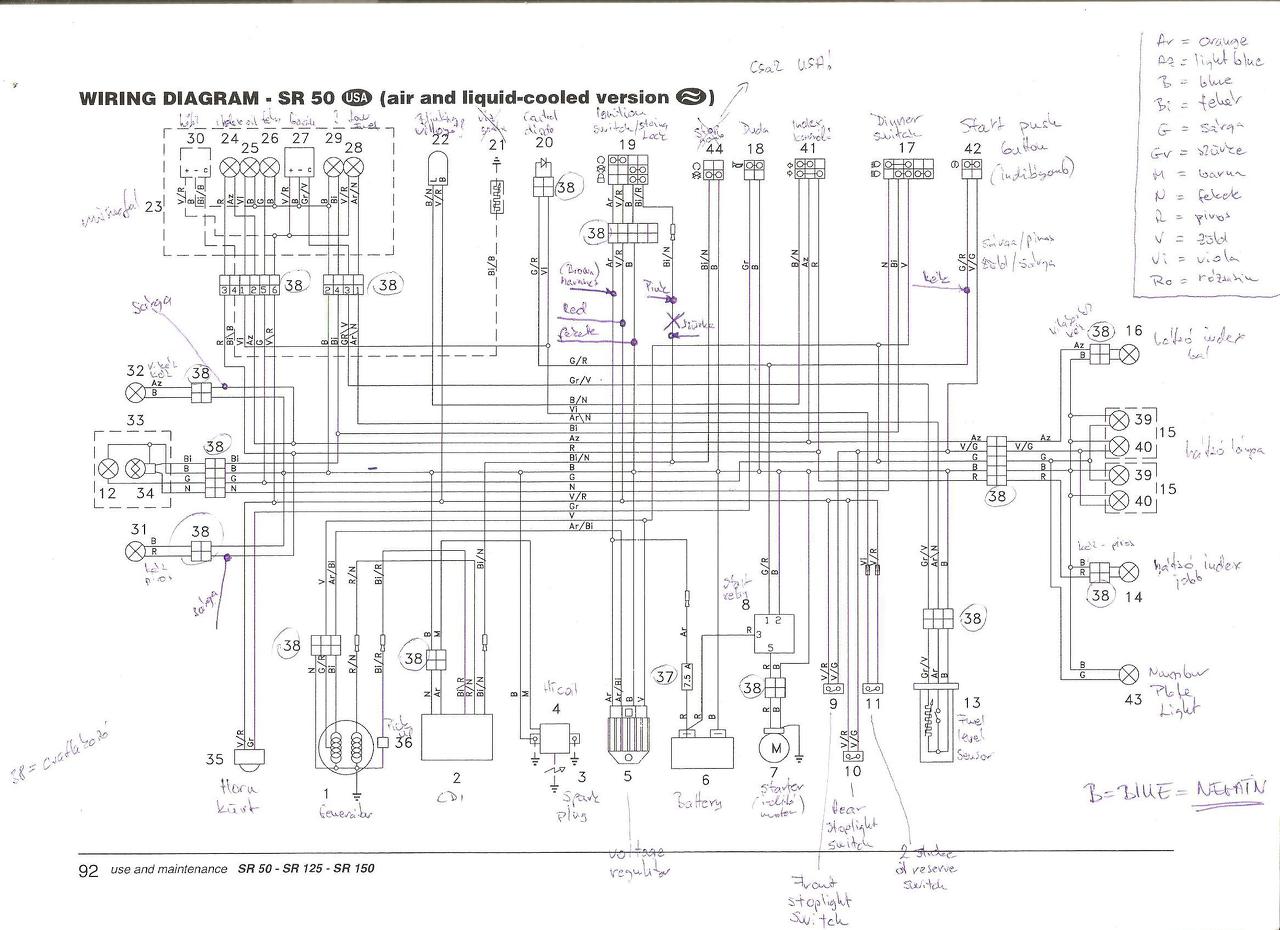 Csak USA!
WIRING DIAGRAM - SR 50 USA (air and liquid-cooled version)
Ar = orange
Az = light blue
B = blue
Bi = fehér
G = sárga
Gr = szürke
M = barna
N = fekete
R = piros
V = zöld
Vi = viola
Ignition
switch/
Lock
Duda
Index
Dimmer
switch
Start push
button
(indítógomb)
30 24 25 26 27 29 28 22 21 20 19 44 18 41 17 42
23
38
L B
V/R B Bi/B R Az Vi B G B V/R B Gr/V B Bi V/R Ar/N
B/N V/R
Bi/B
G/R Vi
Ar V/R B Bi/R
38
Ar V/R B Bi/N
Bi/N B
Gr B
B/N Az R
N Bi V
V/R V/G
sárga/piros
zöld/sárga
3 4 1 2 5 6 38
2 4 3 1 38
(Brown)
Pink
Red
fekete
szürke
kék
sárga
R Bi\B Vi Az G V\R
B Bi GR\V Ar\N
38 16
Az
B
hátsó index
bal
G/R
Gr/V
32 38
Az
B
B/N
Vi
Ar\N
Bi
Az
R
Bi/N
B
G
N
V/R
Gr
V
Ar/Bi
33
38
Bi
B
G
N
12 34
Az
V/G
G
B
R
38
39
40
15
39
40
15
hátsó lámpa
31 38
B
R
kék
piros
sárga
kék - piros
B
R
38
14
hátsó index
jobb
V Ar/Bi R/N Bi/R
Bi/N
G/R B
Vi V/R
Gr/V Ar\N B
38
N G/R Bi R/N Bi/R
B M
38
N Ar Bi\R R/N Bi/N
B M
Ar
37
7.5 A
Start
relay
8
1 2
3
5
R
38
R B
V/R V/G
9
11
38
Gr/V Ar B
B
G
43
Number
Plate
Light
V/R Gr
35
Horn
kürt
1
Generátor
Pick
up
36
2
CDI
4
3
Spark
plug
Ar Ar/Bi B V
5
voltage
regulator
R R B
6
Battery
M
7
starter
(indító
motor)
V/R V/G
10
Rear
stoplight
switch
Front
stoplight
switch
2 stroke
oil reserve
switch
13
Fuel
level
Sensor
38 = csatlakozó
B = BLUE = NEGATÍV
92 use and maintenance SR 50 - SR 125 - SR 150